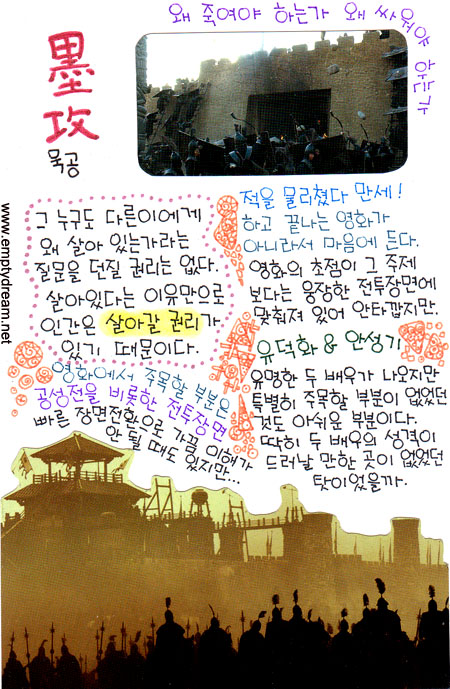 왜 죽여야 하는가 왜 싸워야 하는가
墨攻
묵공
그 누구도 다른이에게
왜 살아 있는가라는
질문을 던질 권리는 없다.
살아있다는 이유만으로
인간은 살아갈 권리가
있기 때문이다.
영화에서 주목할 부분은
공성전을 비롯한 전투장면
빠른 장면전환으로 가끔 이해가
안 될 때도 있지만...
적을 물리쳤다 만세!
하고 끝나는 영화가
아니라서 마음에 든다.
영화의 초점이 그 주제
보다는 웅장한 전투장면에
맞춰져 있어 안타깝지만.
유덕화 & 안성기
유명한 두 배우가 나오지만
특별히 주목할 부분이 없었던
것도 아쉬운 부분이다.
딱히 두 배우의 성격이
드러날 만한 곳이 없었던
탓이었을까.
www.emptydream.net